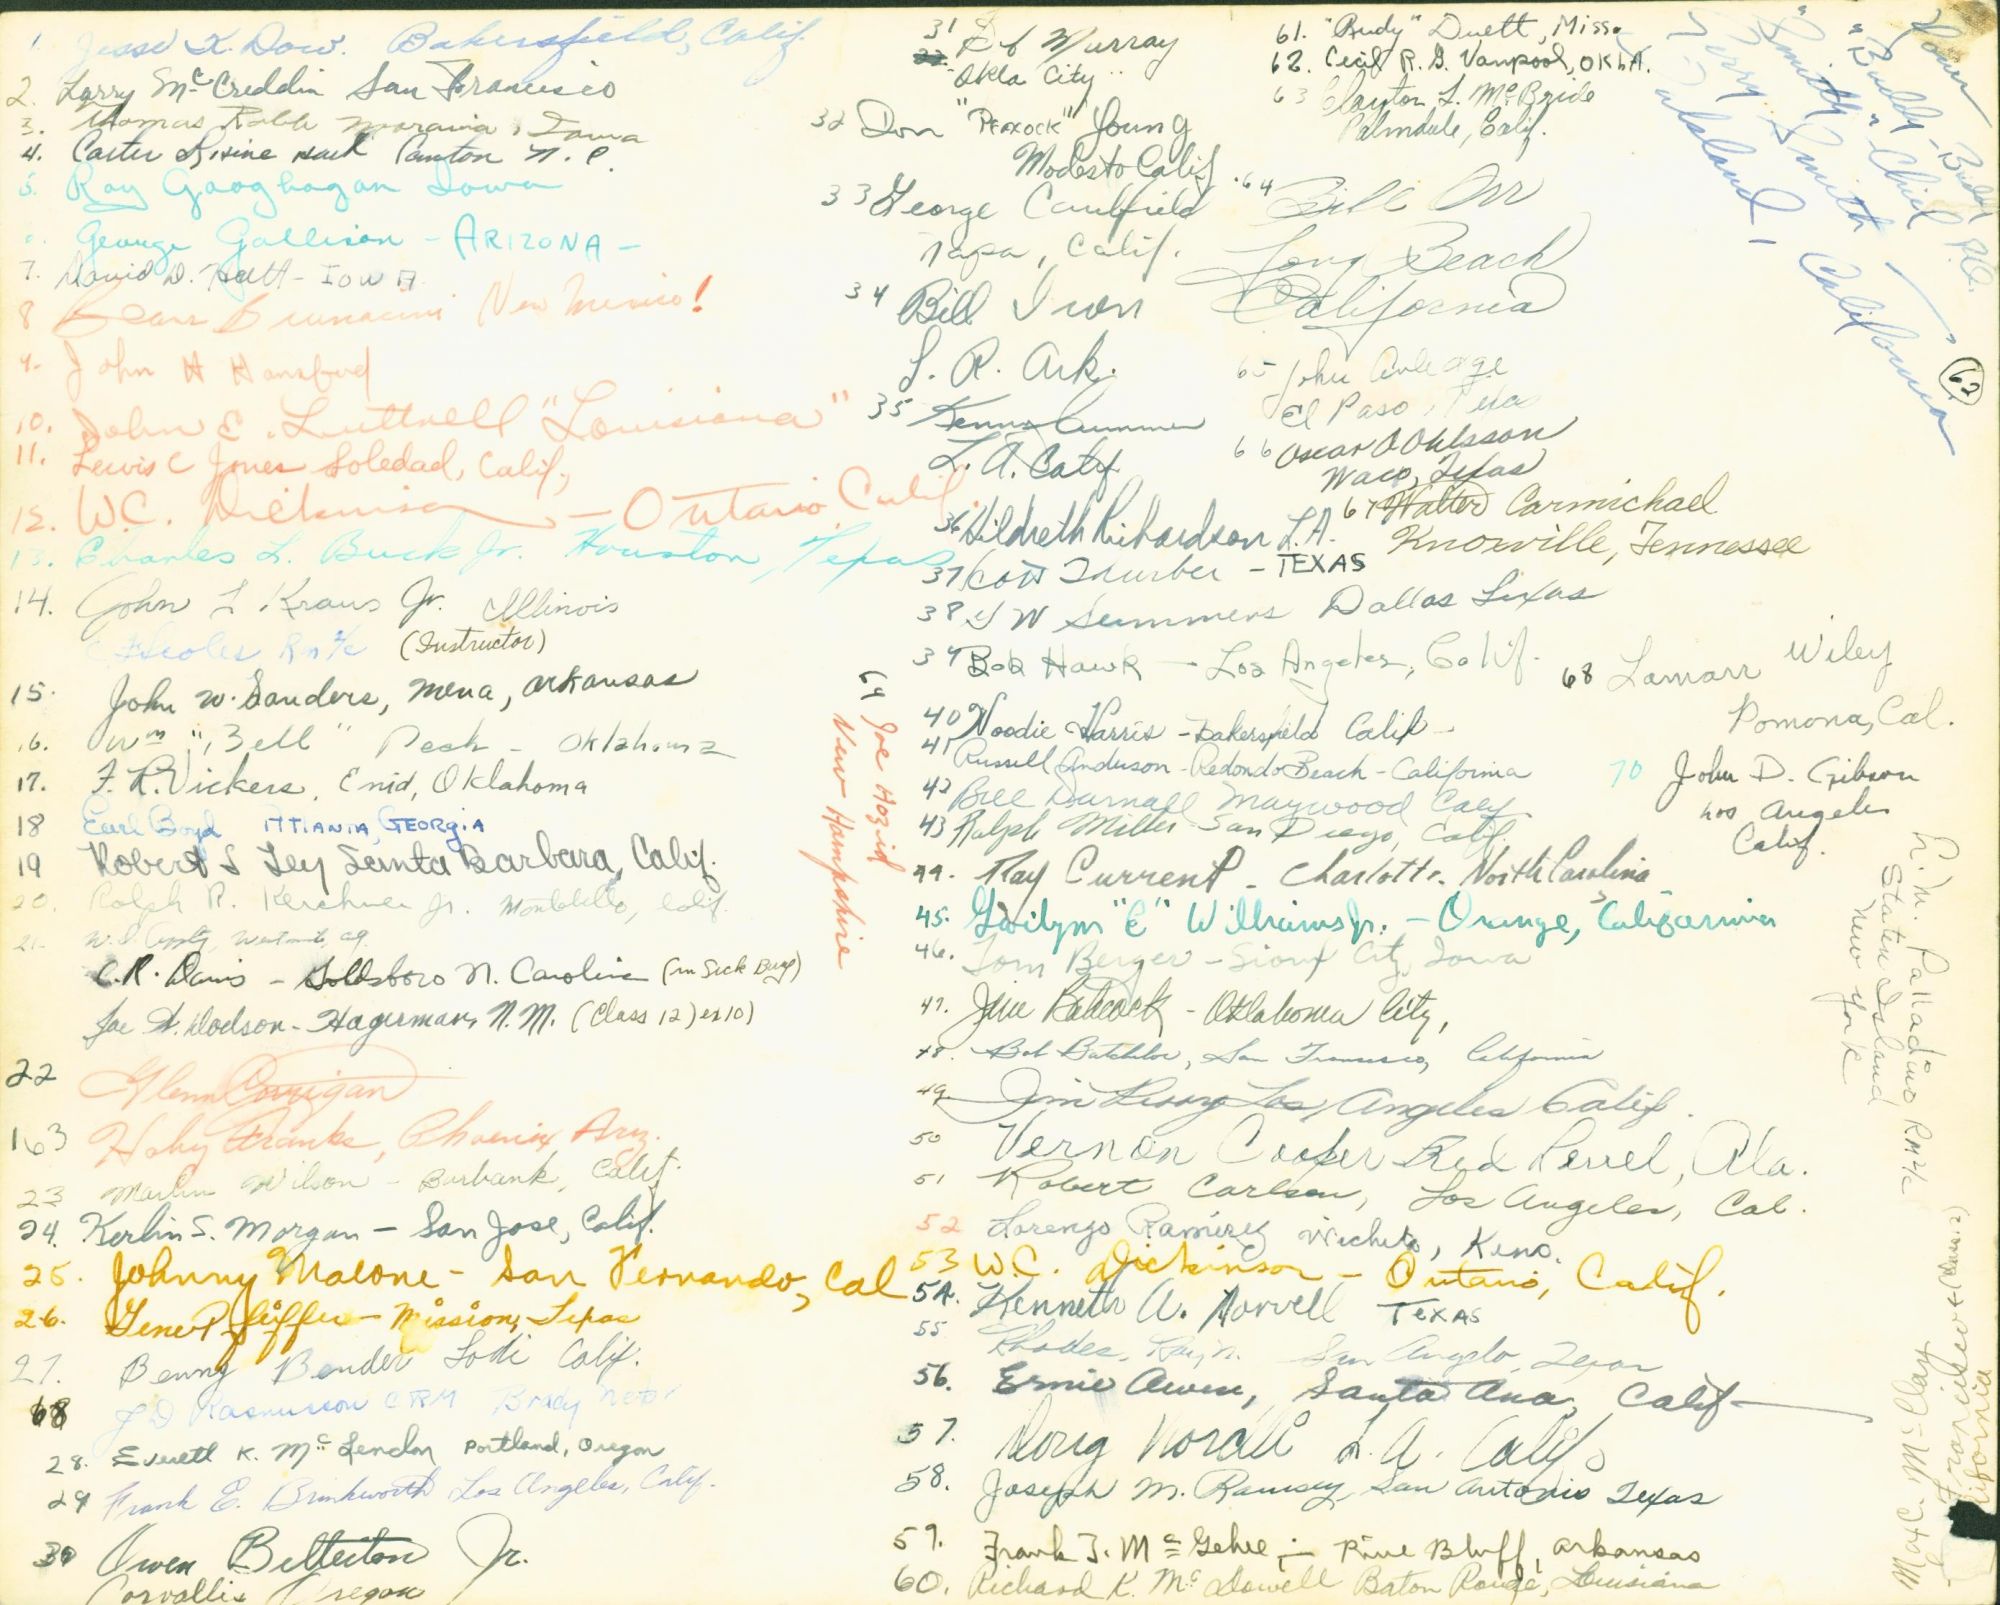 1. Jesse K. Dow. Bakersfield, Calif.
2. Larry McCreddin San Francisco
3. Thomas Robb Moravia, Iowa
4. Carter Canton N.C.
5. Ray Gaoghagan Iowa
6. George Gallison - ARIZONA -
7. David D. Hutt - IOWA
8 Brunacini New Mexico!
9. John H Hansford
10. John E. Luttrell "Louisiana"
11. Lewis C Jones Soledad, Calif,
12. W.C. Dickinson - Ontario, Calif
13. Charles L. Buck Jr. Houston, Texas
14. John L Kraus Jr. Illinois
(Instructor)
15. John W. Sanders, Mena, Arkansas
16. Wm "Bell" Peak - Oklahoma
17. F. R. Vickers, Enid, Oklahoma
18 Earl Boyd ATLANTA, GEORGIA
19 Robert S Ley Santa Barbara, Calif.
20. Ralph R. Kerchner Jr. Montebello, Calif.
21.
C.R. Davis - Goldsboro N. Carolina (in Sick Bay)
Joe W. Dodson - Hagerman, N.M. (Class 12) ex 10)
22 Glenn Corrigan
163 Franks, Phoenix Ariz.
23 Marlin Wilson - Burbank, Calif.
24. Kerlin S. Morgan - San Jose, Calif.
25. Johnny Malone - San Fernando, Cal
26. Gene Pfeiffer - Mission, Texas
27. Benny Bender Lodi Calif.
68 J D Rasmusson CRM Brady Nebr
28. Everett K. McLendon Portland, Oregon
29 Frank E. Brinkworth Los Angeles, Calif.
30 Owen Betterton Jr.
Corvallis Oregon
31 Murray
Okla City
32 Don "Peacock" Young
Modesto Calif
33 George Caulfield
Napa, Calif.
34 Bill Iron
L. R. Ark.
35
L.A. Calif
36 Hildreth Richardson L.A.
37 Scott Thurber - TEXAS
38 J W Summers Dallas Texas
39 Bob Hawk - Los Angeles, Calif.
40 Noodie Harris - Bakersfield Calif -
41 Russell Anderson - Redondo Beach - California
42 Bill Darnall Maywood Calif
43 Ralph Miller - San Diego, Calif.
44. Ray Current - Charlotte, North Carolina
45. Gwilym "E" Williams Jr. - Orange, California
46. Tom Berger - Sioux City, Iowa
47. Jim Babcock - Oklahoma City,
48. Bob Batchelor, San Francisco, California
49. Jim Los Angeles Calif.
50 Vernon Cooper Red Level, Ala.
51 Robert Carlson, Los Angeles, Cal.
52 Lorenzo Ramirez Wichita, Kans.
53 W.C. Dickinson - Ontario, Calif.
54. Kenneth W. Norvell TEXAS
55 Rhodes, Ray N. San Angelo, Texas
56. Ernie Owen, Santa Ana, Calif -
57. Doug L.A. Calif
58. Joseph M. Ramsey, San Antonio Texas
59. Frank J. McGehee, - Pine Bluff, Arkansas
60. Richard K. McDowell Baton Rouge, Louisiana
61. "Rudy" Duett, Miss.
62. Cecil R. G. Vanpool, OKLA.
63 Clayton L. McBride
Palmdale, Calif.
64 Bill Orr
Long Beach
California
65 John Arledge
El Paso, Texas
66 Oscar A Ohlsson
Waco, Texas
67 Walter Carmichael
Knoxville, Tennessee
68 Lamarr Wiley
Pomona, Cal.
69 Joe Hozid
New Hampshire
70 John D. Gibson
Los Angeles
Calif.
"Buddy" "Chief"
"Smitty"
Jerry Smith
Oakland, California
62
L.M. Palladino RM2/c
Staten Island
New York
San Francisco (Class 12)
California